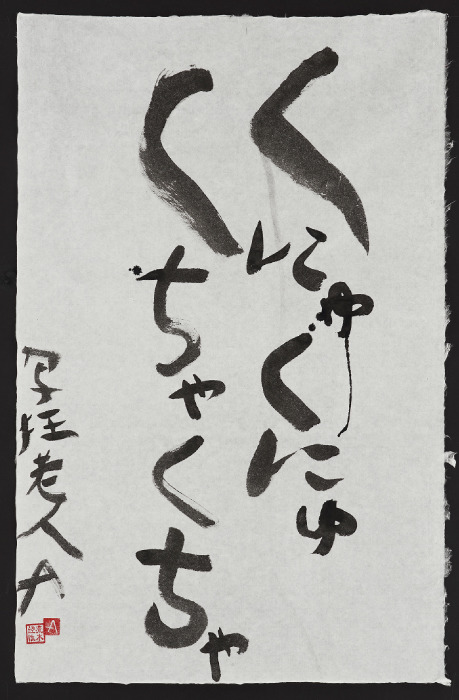 くにゃくにゅ
くちゃくちゃ
写狂老人A
A